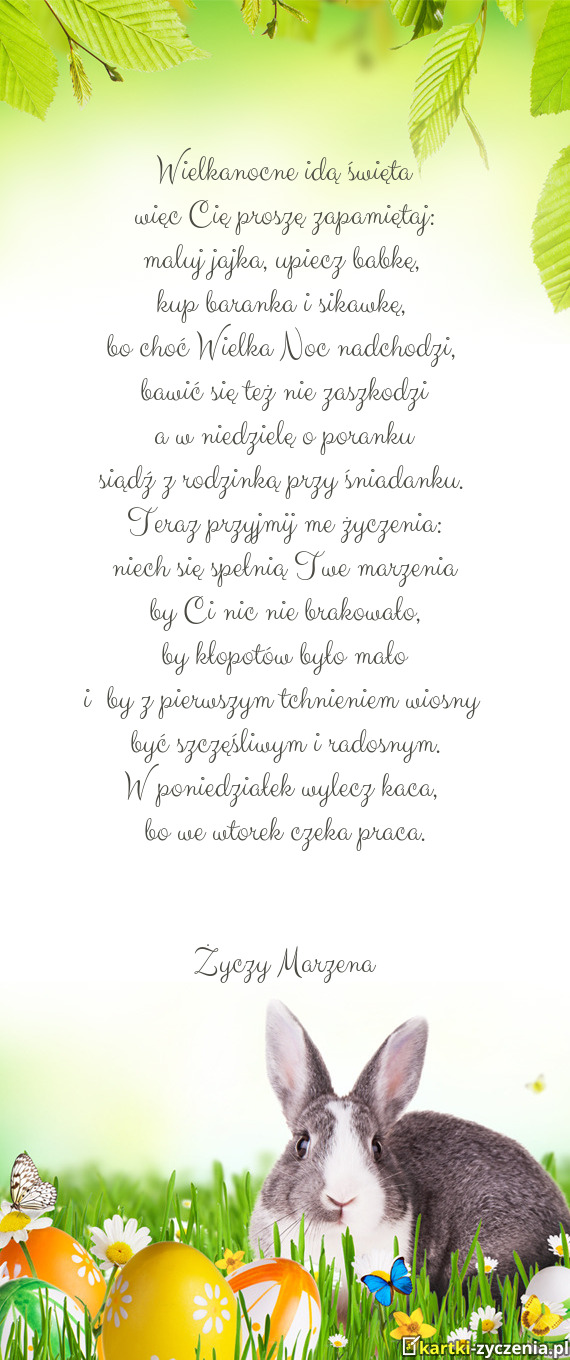 Wielkanocne idą święta
więc Cię proszę zapamiętaj:
maluj jajka, upiecz babkę,
kup baranka i sikawkę,
bo choć Wielka Noc nadchodzi,
bawić się też nie zaszkodzi
a w niedzielę o poranku
siądź z rodzinką przy śniadanku.
Teraz przyjmij me życzenia:
niech się spełnią Twe marzenia
by Ci nic nie brakowało,
by kłopotów było mało
i by z pierwszym tchnieniem wiosny
być szczęśliwym i radosnym.
W poniedziałek wylecz kaca,
bo we wtorek czeka praca.
Życzy Marzena
kartki-zyczenia.pl